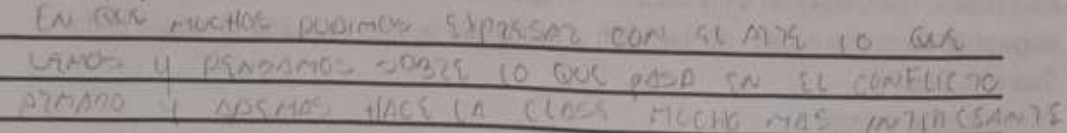 EN QUE MUCHOS PUDIMOS EXPRESAR CON EL ARTE LO QUE
Y PENSAMOS SOBRE LO QUE PASA EN EL CONFLICTO
ARMADO Y ADEMAS HACE LA CLASE MUCHO MAS INTERESANTE